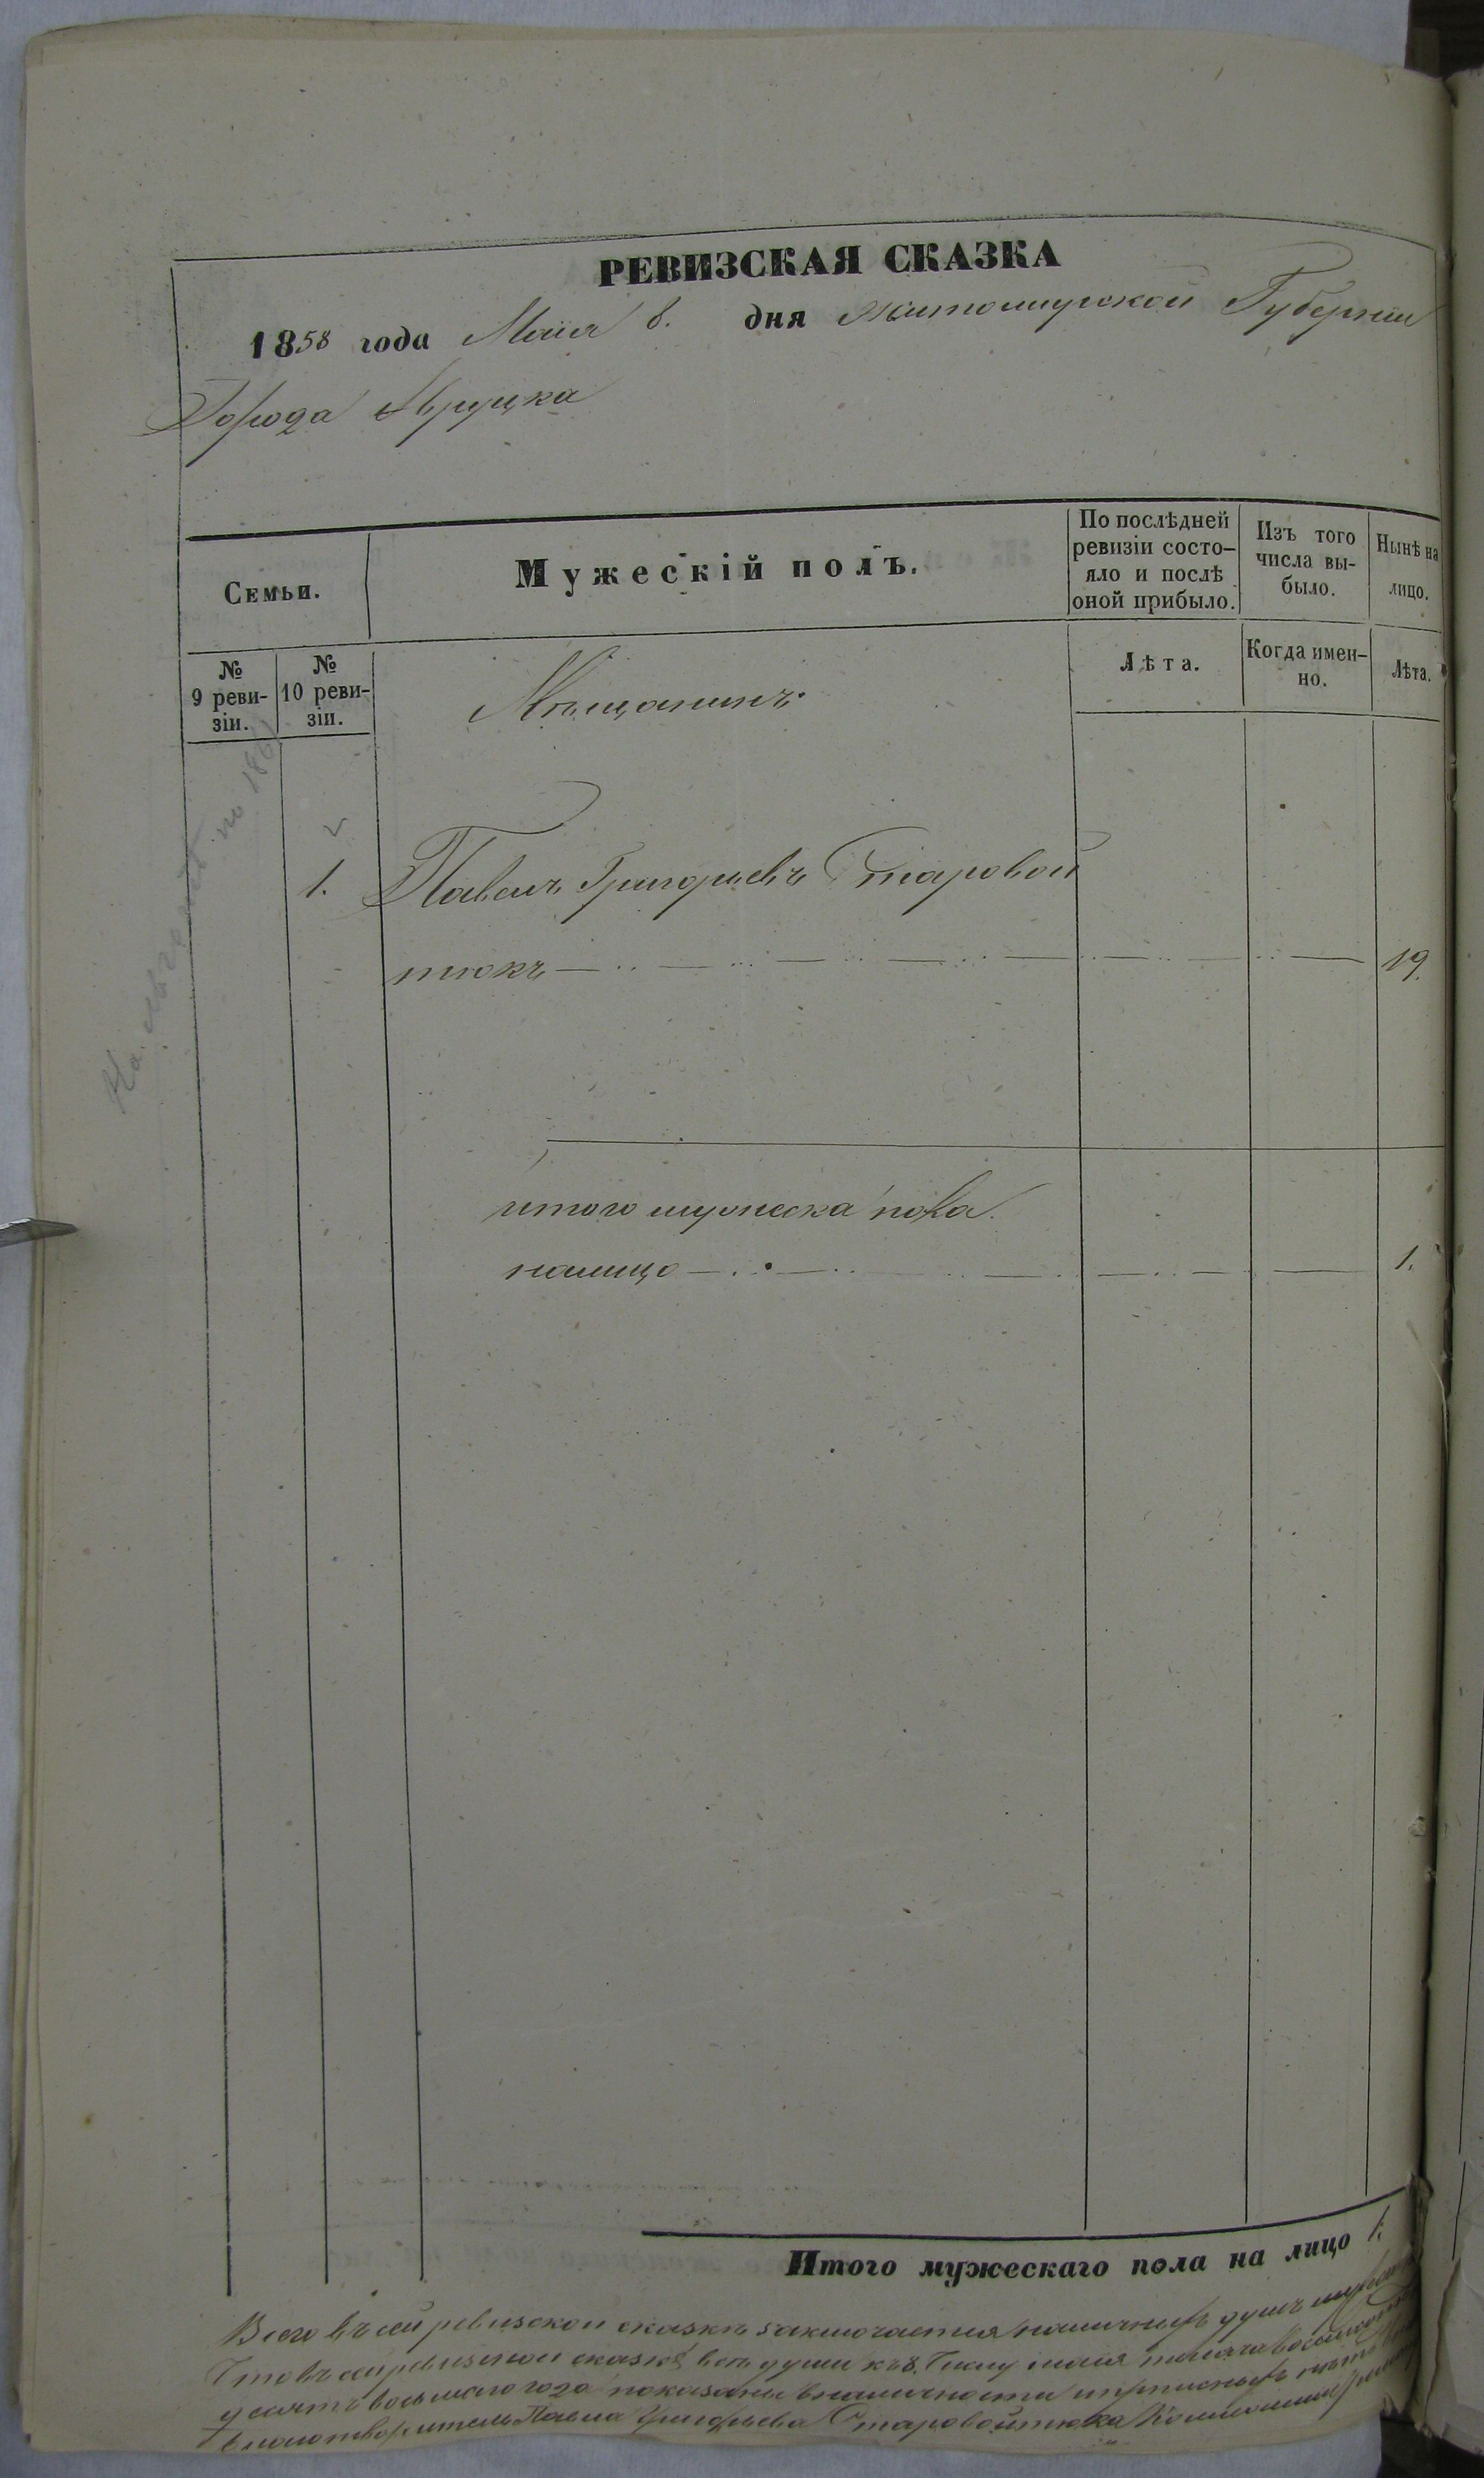 РЕВИЗСКАЯ СКАЗКА
1858 года Маия 8. дня Житомирской Губернии
Города Овруцка
Семьи.
Мужескій полъ.
По послѣдней ревизіи состо-яло и послѣ оной прибыло.
Изъ того числа вы-было.
Нынѣ на лицо.
№ 9 реви-зіи.
№ 10 реви-зіи.
Мѣщанинъ
Лѣта.
Когда имен-но.
Лѣта.
1. Павелъ Григорьевъ Старовой
тюкъ 19.
итого мужеска пола
налицо 1.
Итого мужескаго пола на лицо 1.
Всего въ сей ревизской сказкѣ заключается наличныхъ душъ
Что въ сей ревизской сказкѣ всѣ души къ 8. Числу маія тысяча восемсотъ
десятъ восьмаго года показаны въ наличности
Павла Григорьева Старовойтюка